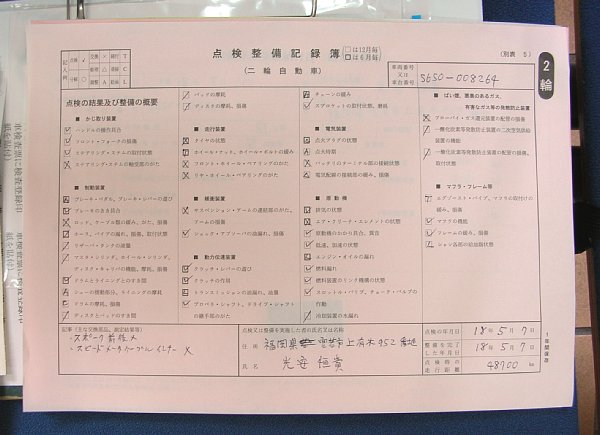 点検整備記録簿 □は12月毎 □は6月毎
(二輪自動車)
(別表 5)
2
輪
車両番号
又は
車台番号
S650-008264
点検の結果及び整備の概要
■ かじ取り装置
ハンドルの操作具合
フロント・フォークの損傷
ステアリング・ステムの取付状態
ステアリング・ステムの軸受部のがた
■ 制動装置
ブレーキ・ペダル、ブレーキ・レバーの遊び
ブレーキのきき具合
ロッド、ケーブル類の緩み、がた、損傷
ホース、パイプの漏れ、損傷、取付状態
リザーバ・タンクの液量
マスタ・シリンダ、ホイール・シリンダ、
ディスク・キャリパの機能、摩耗、損傷
ドラムとライニングとのすき間
シューの摺動部分、ライニングの摩耗
ドラムの摩耗、損傷
ディスクとパッドのすき間
パッドの摩耗
ディスクの摩耗、損傷
■ 走行装置
タイヤの状態
ホイール・ナット、ホイール・ボルトの緩み
フロント・ホイール・ベアリングのがた
リヤ・ホイール・ベアリングのがた
■ 緩衝装置
サスペンション・アームの連結部のがた、
アームの損傷
ショック・アブソーバの油漏れ、損傷
■ 動力伝達装置
クラッチ・レバーの遊び
クラッチの作用
トランスミッションの油漏れ、油量
プロペラ・シャフト、ドライブ・シャフト
の継手部のがた
チェーンの緩み
スプロケットの取付状態、磨耗
■ 電気装置
点火プラグの状態
点火時期
バッテリのターミナル部の接続状態
電気配線の接続部の緩み、損傷
■ 原動機
排気の状態
エア・クリーナ・エレメントの状態
原動機のかかり具合、異音
低速、加速の状態
エンジン・オイルの漏れ
燃料漏れ
燃料装置のリンク機構の状態
スロットル・バルブ、チョーク・バルブの
作動
冷却装置の水漏れ
■ ばい煙、悪臭のあるガス、
有害なガス等の発散防止装置
ブローバイ・ガス還元装置の配管の損傷
一酸化炭素等発散防止装置の二次空気供給
装置の機能
一酸化炭素等発散防止装置の配管の損傷、
取付状態
■ マフラ・フレーム等
エグゾースト・パイプ、マフラの取付けの
緩み、損傷
マフラの機能
フレームの緩み、損傷
シャシ各部の給油脂状態
記事(主な交換部品、測定結果等)
・スポーク 前後 ×
・スピードメータケーブル インナー ×
点検又は整備を実施した者の氏名又は名称
住所
福岡県 宮若市上有木952番地
氏名
光安 恒貴
点検の年月日 18年5月7日
整備を完了
した年月日 18年5月7日
点検時の
走行距離 48700 km
1年間保存